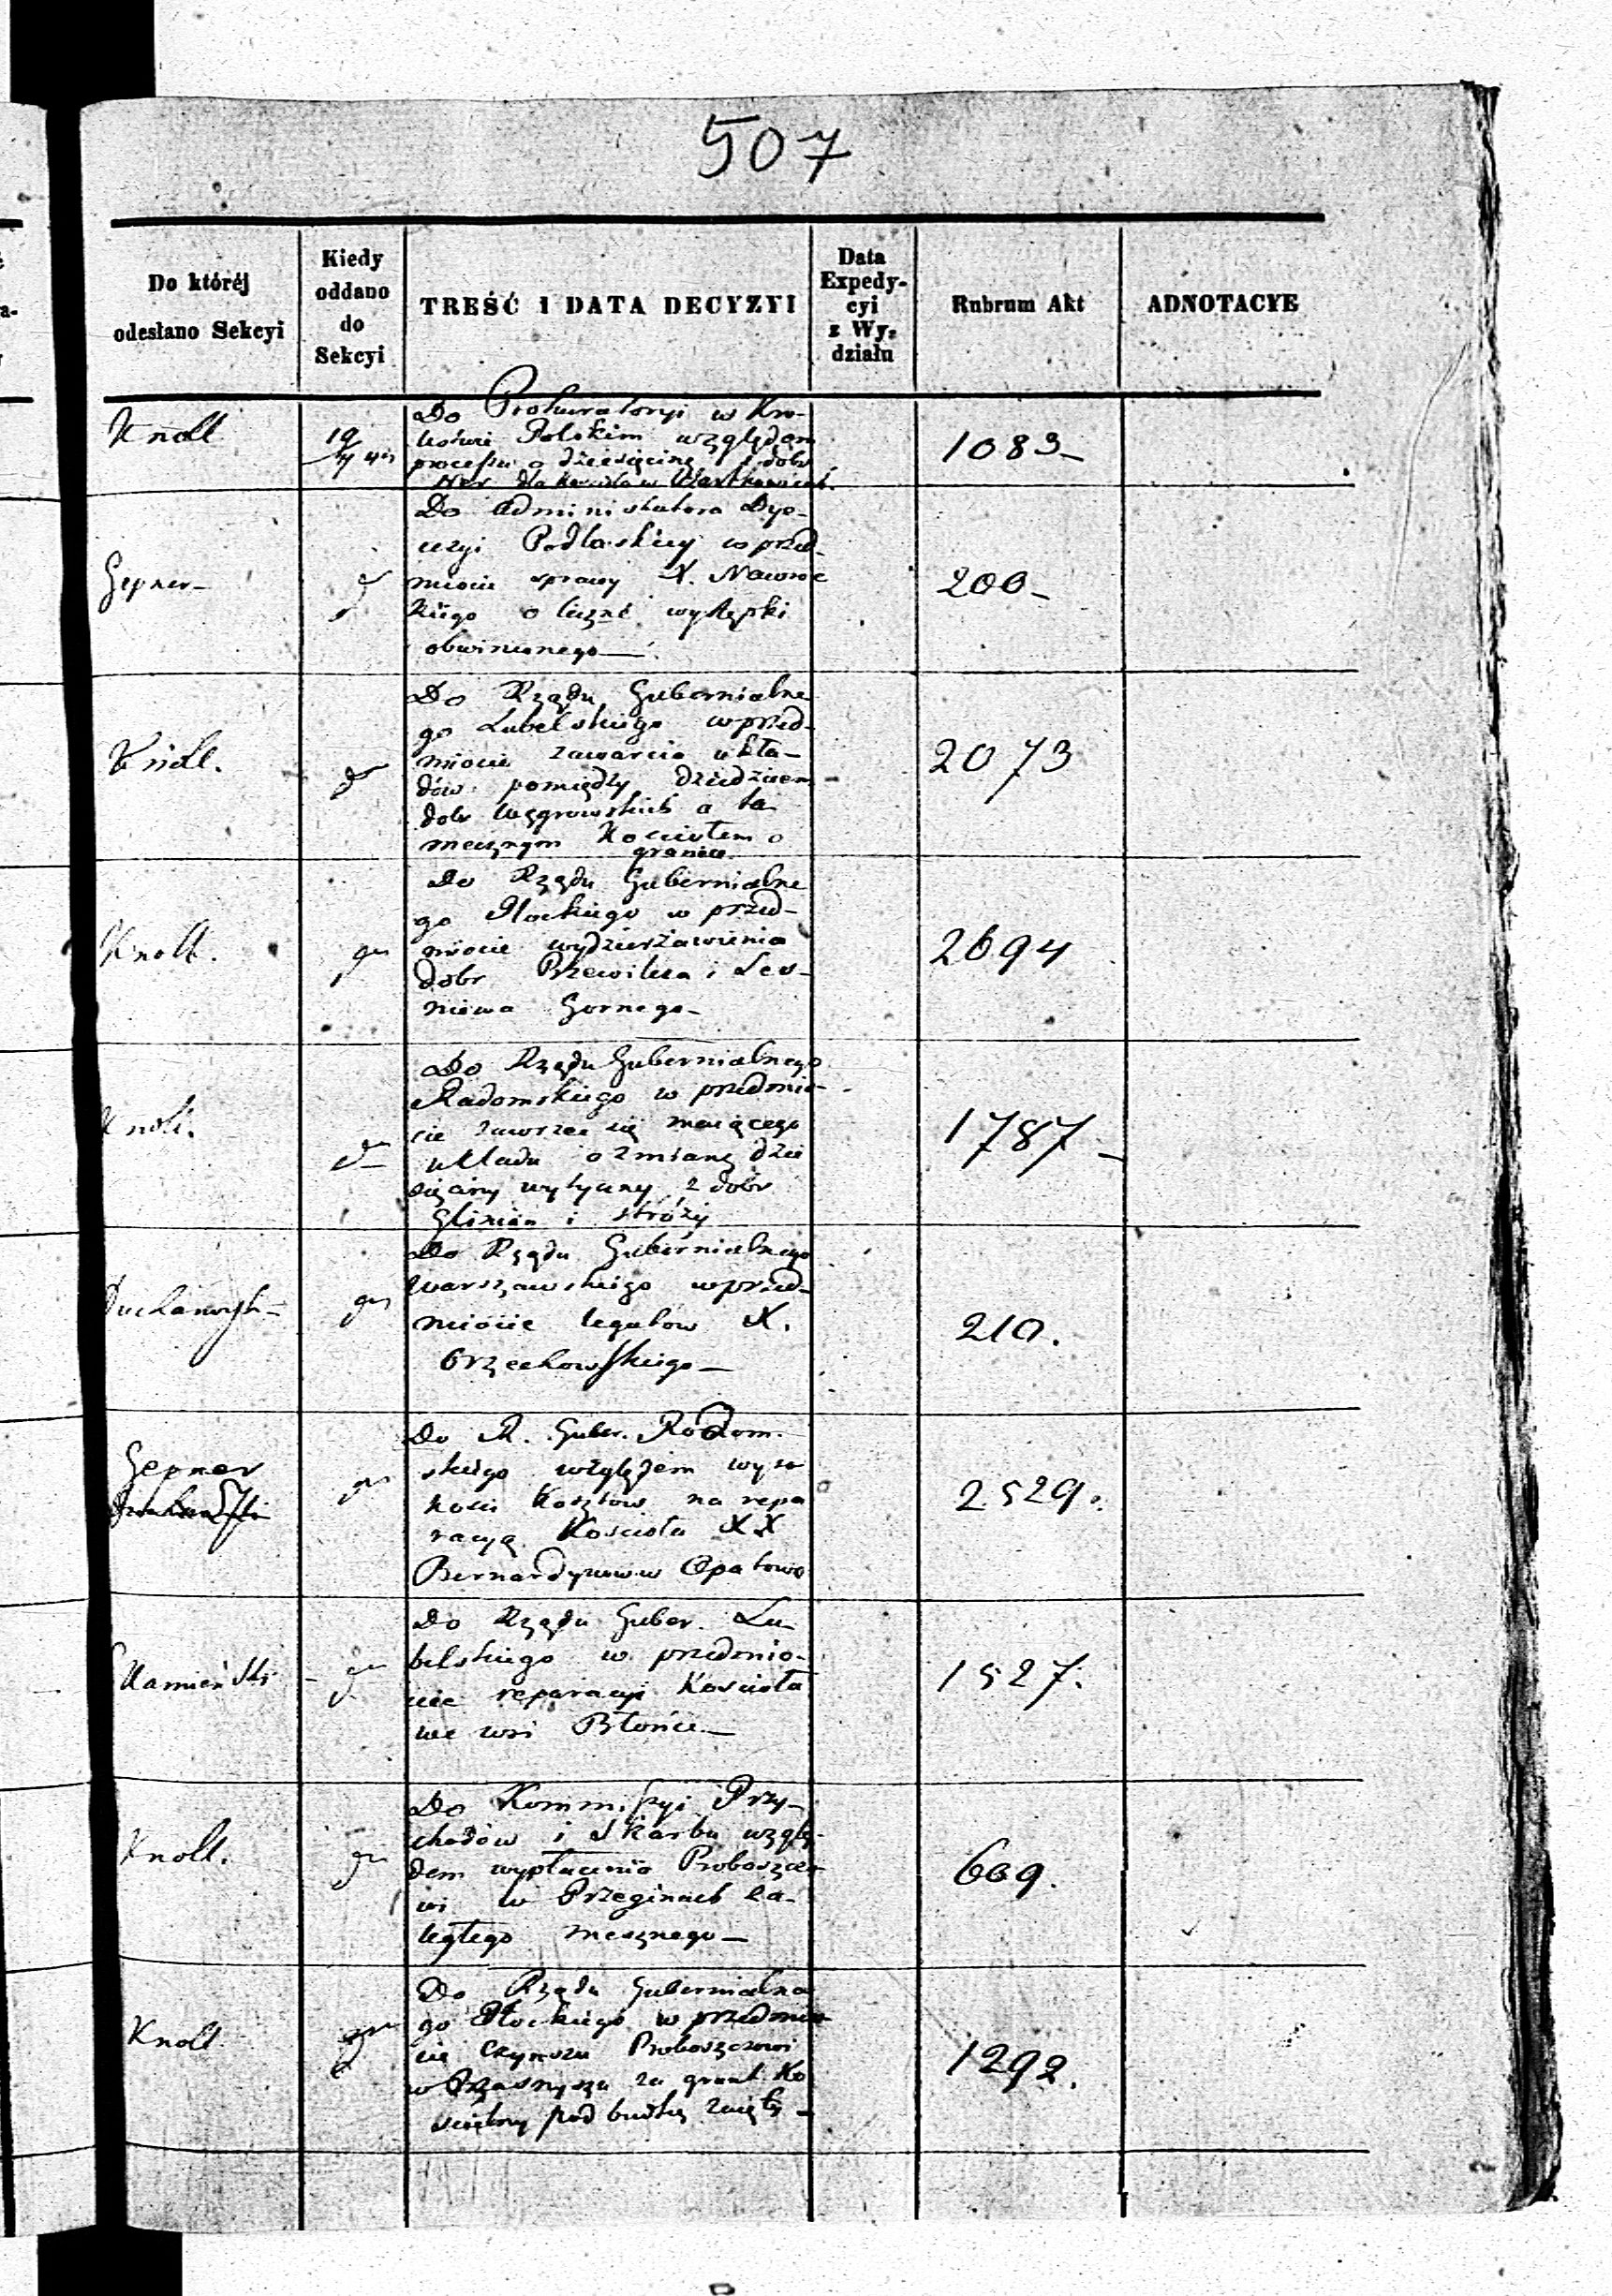 507
Do któréj
odesłano Sekcyi
Kiedy
oddano
do
Sekcyi
TREŚĆ I DATA DECYZYI
Data
Expedy-
cyi
z Wy-
działu
Rubrum Akt
ADNOTACYE
Knoll
19
Do Prokuratoryi w Kro-
lestwie Polskim względem
processu o dziesięcinę z dobr
Ner dla Kościoła w Wartkowicach
1083-
Gepner-
Do Administratora Dye-
cezyi Podlaskiey w przed-
miocie sprawy X. Nawroc
kiego o liczne występki
obwinionego-
200-
Knoll.
Do Rządu Gubernialne
go Lubelskiego w przed-
miocie zawarcia ukła-
dów pomiędzy dziedzicem
dobr Węgrowskich a ta
mecznym Kościołem o
granice
2073
Knoll.
Do Rządu Gubernialne
go Płockiego w przed-
miocie wydzierżawienia
dobr Przewilcza i Les-
niewa Gornego-
2694
Knoll.
Do Rządu Gubernialnego
Radomskiego w przedmio-
cie zawrzeć się maiącego
układu o zmianę dzie
sięciny wytyczny z dobr
Glinian i Stróży
1787-
Do Rządu Gubernialnego
Warszawskiego w przed-
miocie legatow X.
Orzechowskiego-
210.
Gepner
Do R. Guber. Radom-
skiego względem wyso
kości Kosztow na repa
racyą Kościoła XX
Bernardynow w Opatowie
2529.
Kamieński
Do Rządu Guber. Lu-
belskiego w przedmio-
cie reparacyi Kościoła
we wsi Błoniu-
1527.
Knoll.
Do Kommissyi Przy-
chodów i Skarbu wzglę-
dem wypłacenia Proboszczo-
wi w Przeginach za-
ległego mesznego-
609.
Knoll
Do Rządu Gubernialne
go Płockiego w przedmio
cie Czynszu Proboszczowi
w Przasnyszu za grunt Ko
ścielny pod budkę zaięty-
1292.